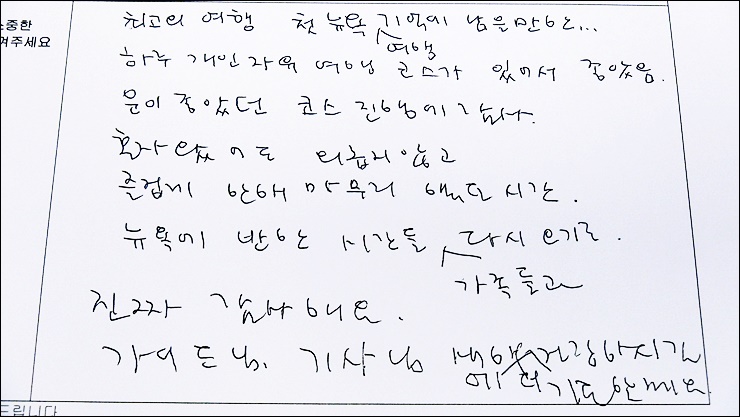 소중한
여주세요
최고의 여행 첫 뉴욕 여행 기억에 남을만한...
하루 개인 자유 여행 코스가 있어서 좋았음.
운이 좋았던 코스 진행에 감사.
혼자 왔어도 외롭지 않고
즐겁게 한해 마무리 했던 시간.
뉴욕에 반한 시간들 가족들과 다시 오기로.
진짜 감사해요.
가이드님. 기사님
드립니다